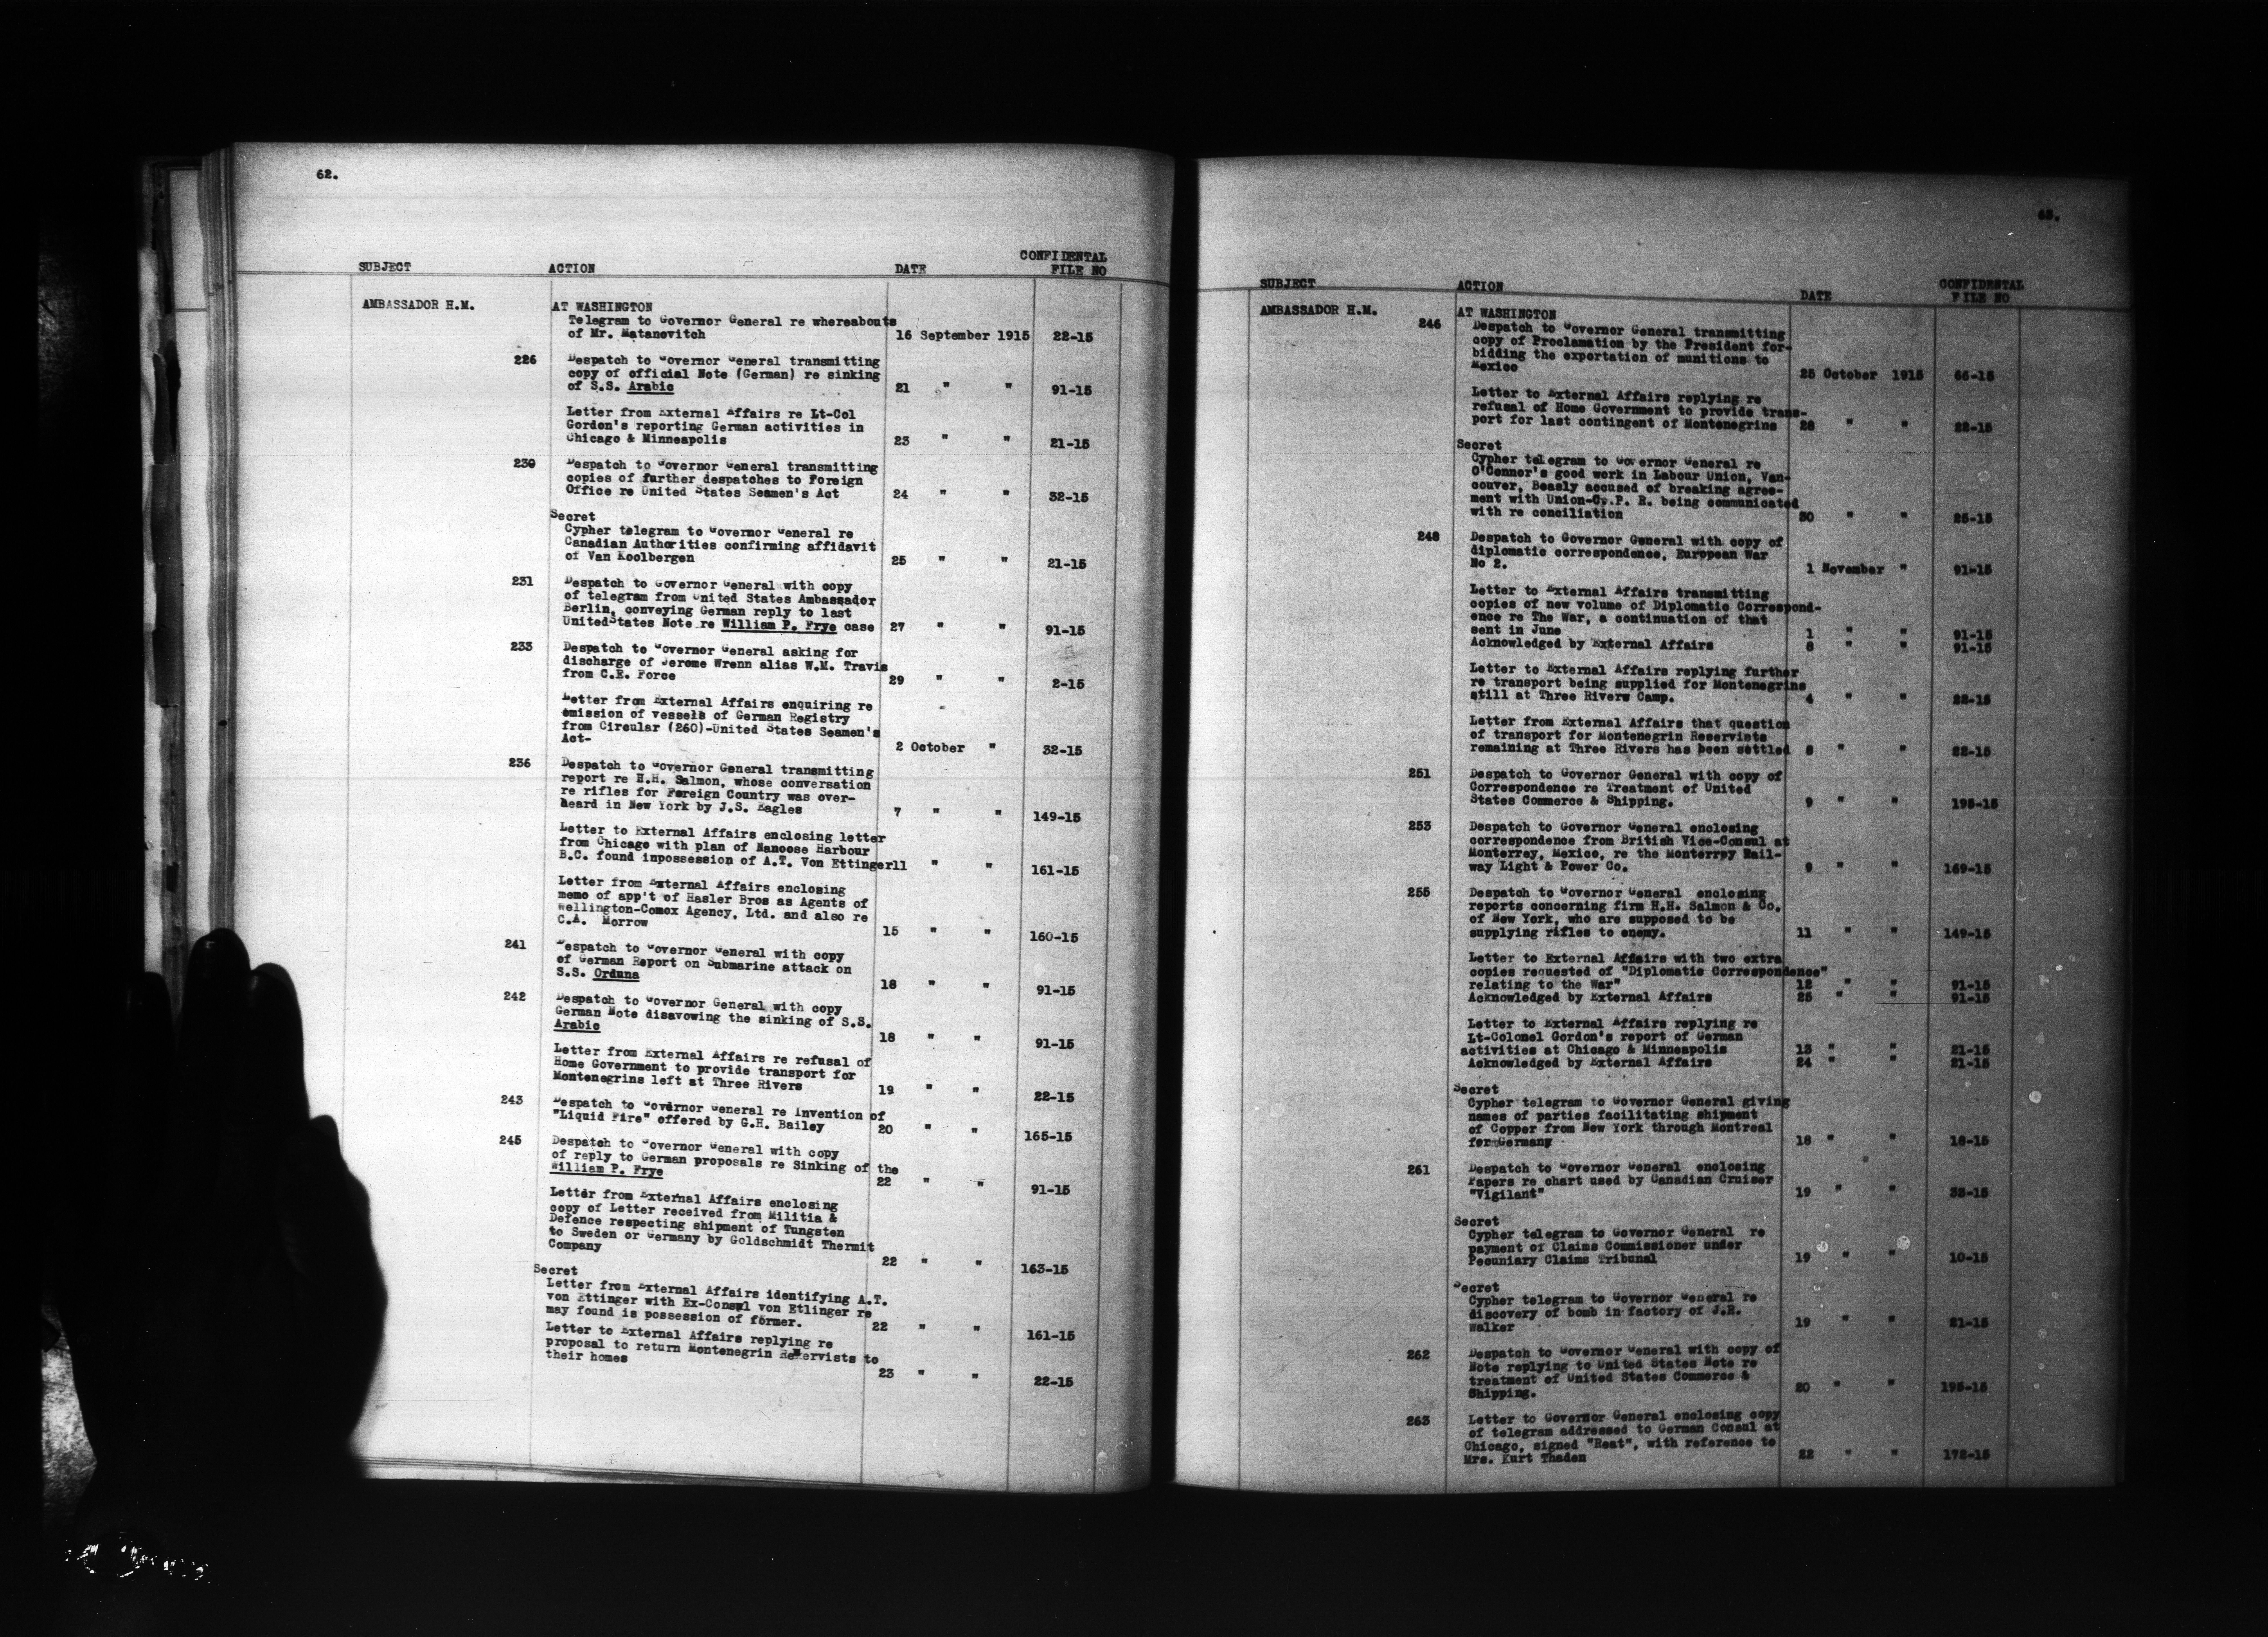 62.
SUBJECT ACTION DATE CONFIDENTAL FILE NO
AMBASSADOR H.M. AT WASHINGTON
Telegram to Governor General re whereabouts
of Mr. Matanovitch 16 September 1915 22-15
226 Despatch to Governor General transmitting
copy of official Note (German) re sinking
of S.S. Arabic 21 " " 91-15
Letter from External Affairs re Lt-Col
Gordon's reporting German activities in
Chicago & Minneapolis 23 " " 21-15
230 Despatch to Governor General transmitting
copies of further despatches to Foreign
Office re United States Seamen's Act 24 " " 32-15
Secret
Cypher telegram to Governor General re
Canadian Authorities confirming affidavit
of Van Koolbergen 25 " " 21-15
231 Despatch to Governor General with copy
of telegram from United States Ambassador
Berlin, conveying German reply to last
UnitedStates Note re William P. Frye case 27 " " 91-15
233 Despatch to Governor General asking for
discharge of Jerome Wrenn alias W.M. Travis
from C.E. Force 29 " " 2-15
Letter from External Affairs enquiring re
omission of vessels of German Registry
from Circular (260)-United States Seamen's
Act- 2 October " 32-15
236 Despatch to Governor General transmitting
report re H.H. Salmon, whose conversation
re rifles for Foreign Country was over-
heard in New York by J.S. Eagles 7 " " 149-15
Letter to External Affairs enclosing letter
from Chicago with plan of Nanoose Harbour
B.C. found inpossession of A.T. Von Ettinger11 " " 161-15
Letter from External Affairs enclosing
memo of app't of Hasler Bros as Agents of
Wellington-Comox Agency, Ltd. and also re
C.A. Morrow 15 " " 160-15
241 Despatch to Governor General with copy
of German Report on Submarine attack on
S.S. Orduna 18 " " 91-15
242 Despatch to Governor General with copy
German Note disavowing the sinking of S.S.
Arabic 18 " " 91-15
Letter from External Affairs re refusal of
Home Government to provide transport for
Montenegrins left at Three Rivers 19 " " 22-15
243 Despatch to Governor General re Invention of
"Liquid Fire" offered by G.H. Bailey 20 " " 165-15
245 Despatch to Governor General with copy
of reply to German proposals re Sinking of the
William P. Frye 22 " " 91-15
Letter from External Affairs enclosing
copy of Letter received from Militia &
Defence respecting shipment of Tungsten
to Sweden or Germany by Goldschmidt Thermit
Company 22 " " 163-15
Secret
Letter from External Affairs identifying A.T.
von Ettinger with Ex-Consul von Etlinger re
may found is possession of former. 22 " " 161-15
Letter to External Affairs replying re
proposal to return Montenegrin Reservists to
their homes 23 " " 22-15
63.
SUBJECT ACTION DATE CONFIDENTAL FILE NO
AMBASSADOR H.M. AT WASHINGTON
246 Despatch to Governor General transmitting
copy of Proclamation by the President for-
bidding the exportation of munitions to
Mexico 25 October 1915 66-15
Letter to External Affairs replying re
refusal of Home Government to provide trans-
port for last contingent of Montenegrins 28 " " 22-15
Secret
Cypher telegram to Governor General re
O'Connor's good work in Labour Union, Van-
couver, Beasly accused of breaking agree-
ment with Union-C.P. R. being communicated
with re conciliation 30 " " 25-15
248 Despatch to Governor General with copy of
diplomatic correspondence, European War
No 2. 1 November " 91-15
Letter to External Affairs transmitting
copies of new volume of Diplomatic Correspond-
ence re The War, a continuation of that
sent in June 1 " " 91-15
Acknowledged by External Affairs 8 " " 91-15
Letter to External Affairs replying further
re transport being supplied for Montenegrins
still at Three Rivers Camp. 4 " " 22-15
Letter from External Affairs that question
of transport for Montenegrin Reservists
remaining at Three Rivers has been settled 8 " " 22-15
251 Despatch to Governor General with copy of
Correspondence re Treatment of United
States Commerce & Shipping. 9 " " 195-15
253 Despatch to Governor General enclosing
correspondence from British Vice-Consul at
Monterrey, Mexico, re the Monterrey Rail-
way Light & Power Co. 9 " " 169-15
255 Despatch to Governor General enclosing
reports concerning firm H.H. Salmon & Co.
of New York, who are supposed to be
supplying rifles to enemy. 11 " " 149-15
Letter to External Affairs with two extra
copies requested of "Diplomatic Correspondence"
relating to the War" 12 " " 91-15
Acknowledged by External Affairs 25 " " 91-15
Letter to External Affairs replying re
Lt-Colonel Gordon's report of German
activities at Chicago & Minneapolis 13 " " 21-15
Acknowledged by External Affairs 24 " " 21-15
Secret
Cypher telegram to Governor General giving
names of parties facilitating shipment
of Copper from New York through Montreal
for Germany 18 " " 18-15
261 Despatch to Governor General enclosing
Papers re chart used by Canadian Cruiser
"Vigilant" 19 " " 33-15
Secret
Cypher telegram to Governor General re
payment of Claims Commissioner under
Pecuniary Claims Tribunal 19 " " 10-15
Secret
Cypher telegram to Governor General re
discovery of bomb in factory of J.R.
Walker 19 " " 21-15
262 Despatch to Governor General with copy of
Note replying to United States Note re
treatment of United States Commerce &
Shipping. 20 " " 195-15
263 Letter to Governor General enclosing copy
of telegram addressed to German Consul at
Chicago, signed "Reat", with reference to
Mrs. Kurt Thaden 22 " " 172-15